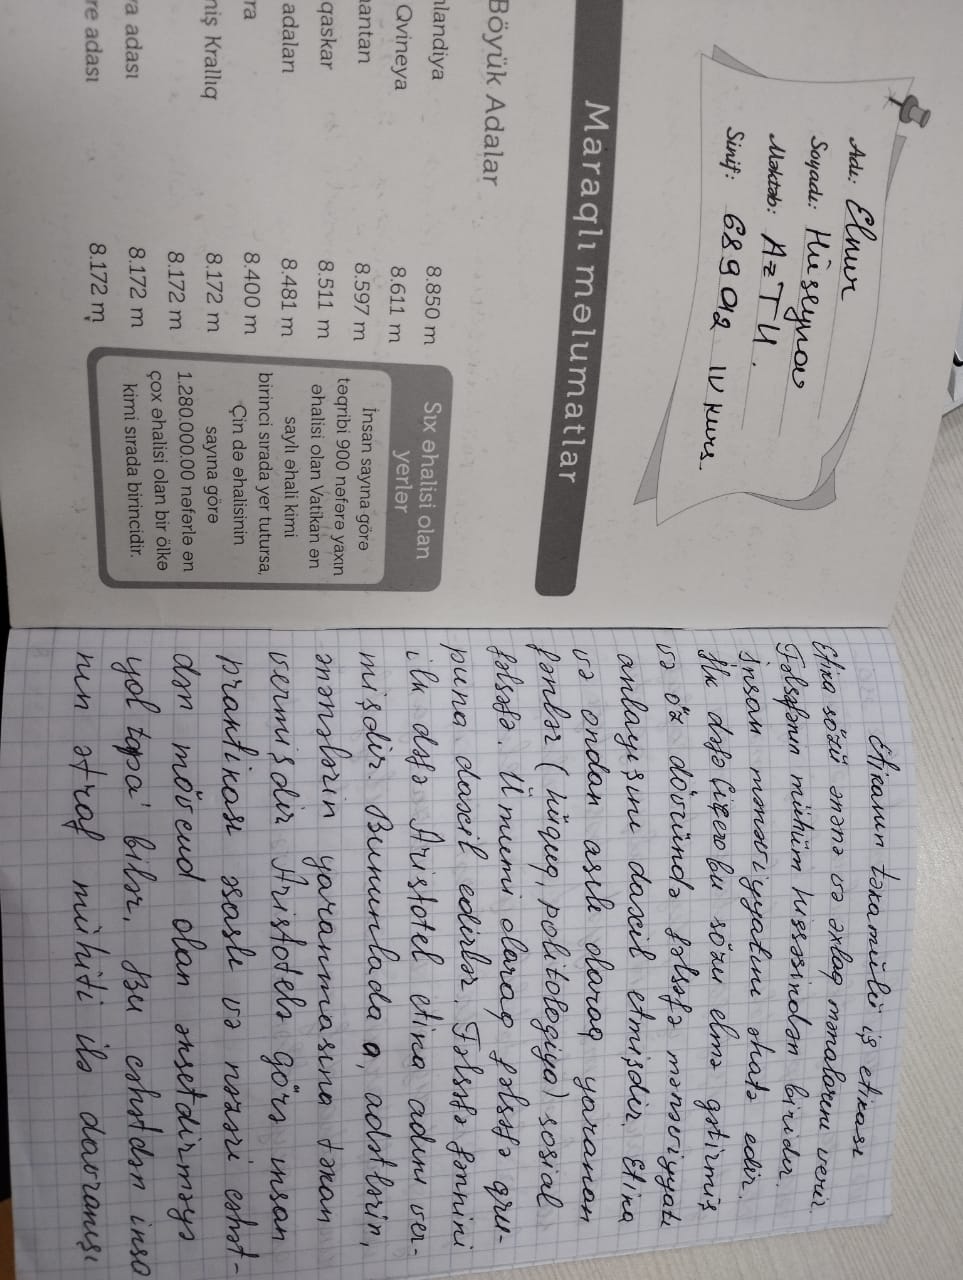 Adı: Elnur
Soyadı: Hüseynov
Məktəb: AzTU.
Sinif: 689 a2 IV kurs
Maraqlı məlumatlar
Böyük Adalar
nlandiya 8.850 m
Qvineya 8.611 m
nantan 8.597 m
qaskar 8.511 m
adaları 8.481 m
ra 8.400 m
niş Krallıq 8.172 m
8.172 m
ra adası 8.172 m
re adası 8.172 m
Sıx əhalisi olan
yerlər
İnsan sayına görə
təqribi 900 nəfərə yaxın
əhalisi olan Vatikan ən
saylı əhali kimi
birinci sırada yer tutursa,
Çin də əhalisinin
sayına görə
1.280.000.00 nəfərlə ən
çox əhalisi olan bir ölkə
kimi sırada birincidir.
Etikanın təkamülü iş etikası
Etika sözü ənənə və əxlaq mənalarını verir.
Fəlsəfənin mühüm hissəsindən biridir.
İnsan mənəviyyatını əhatə edir.
İlk dəfə Sisero bu sözü elmə gətirmiş
və öz dövründə fəlsəfə mənəviyyatı
anlayışını daxil etmişdir. Etika
və ondan asılı olaraq yaranan
fənlər (hüquq, politologiya) sosial
fəlsəfə. Ümumi olaraq fəlsəfə qru-
puna daxil edirlər. Fəlsəfə fənnini
ilk dəfə Aristotel etika adını ver-
mişdir. Bununlada o, adətlərin,
ənənələrin yaranmasına təkan
vermişdir Aristotelə görə insan
praktikası əsaslı və nəzəri cəhət-
dən mövcud olan əksetdirməyə
yol tapa bilər. Bu cəhətdən insa
nın ətraf mühiti ilə davranışı